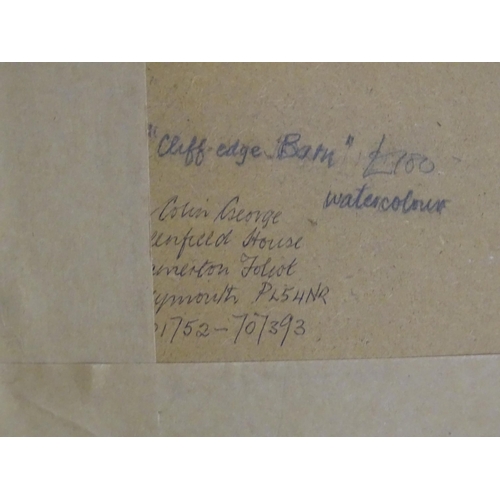 "Cliff-edge Barn" £180
watercolour
Colin George
enfield House
merton Foliot
ymouth PL54NR
01752-707393